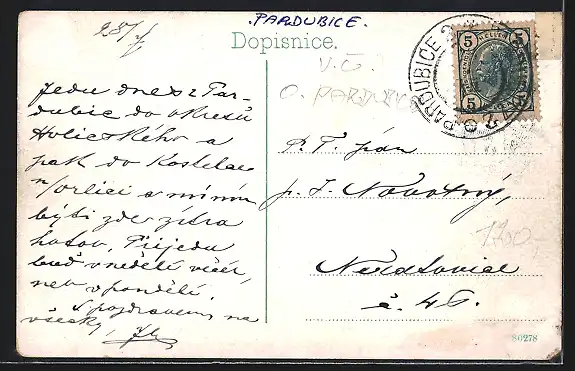 287/7
PARDUBICE.
Dopisnice.
V.Č.
O. PARDUBICE
PARDUBICE 2
5 5
5 5
Jedu dnes z Par-
dubic do okresu
Holického a
pak do Kostelce
n/Orlicí a míním
býti zde zítra
hotov. Přijedu
buď v neděli večer,
neb v pondělí.
S pozdravem na
všecky
P. T. pán
p. J. Novotný,
č. 46.
1700,-
80278